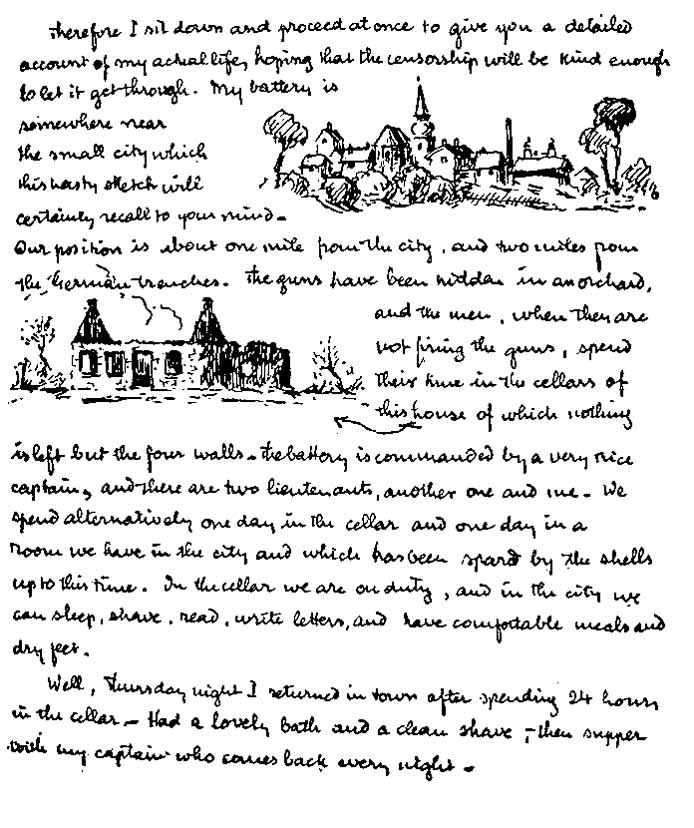 Therefore I sit down and proceed at once to give you a detailed
account of my actual life, hoping that the censorship will be kind enough
to let it get through. My battery is
somewhere near
the small city which
this hasty sketch will
certainly recall to your mind.
Our position is about one mile from the city, and two miles from
the German trenches. The guns have been hidden in an orchard,
and the men, when they are
not firing the guns, spend
their time in the cellars of
this house of which nothing
is left but the four walls. The battery is commanded by a very nice
captain, and there are two lieutenants, another one and me. We
spend alternatively one day in the cellar and one day in a
room we have in the city and which has been spared by the shells
up to this time. In the cellar we are on duty, and in the city we
can sleep, shave, read, write letters, and have comfortable meals and
dry feet.
Well, Thursday night I returned in town after spending 24 hours
in the cellar - Had a lovely bath and a clean shave, - then supper
with my captain who comes back every night -